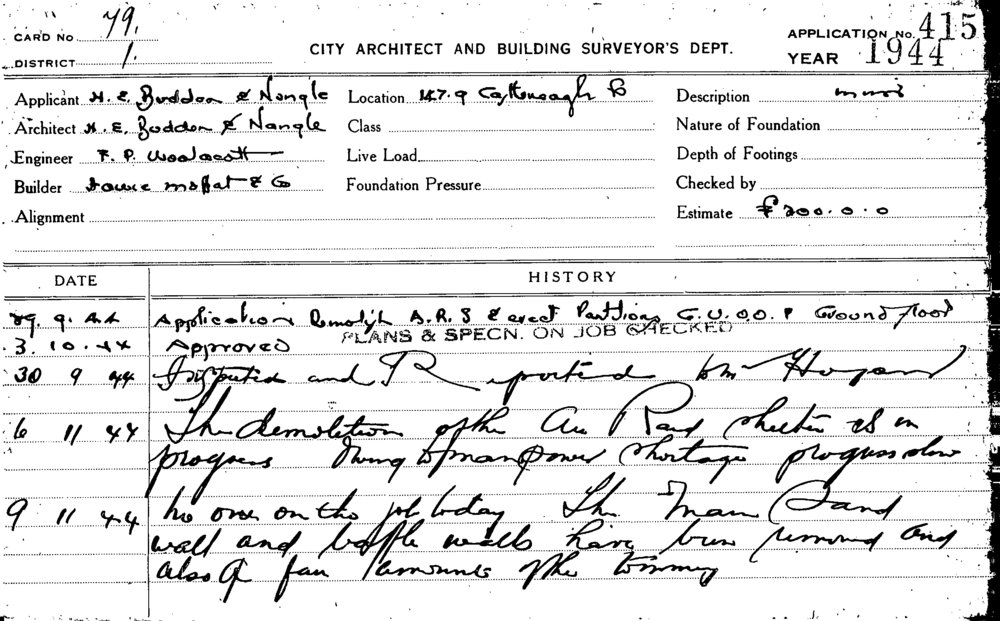 CARD No 79.
DISTRICT 1.
CITY ARCHITECT AND BUILDING SURVEYOR'S DEPT.
APPLICATION No. 415
YEAR 1944
Applicant H. E. Budden & Nangle
Location 147.9 Castlereagh St
Description minor
Architect H. E. Budden & Nangle
Class
Nature of Foundation
Engineer F. P. Woolacott
Live Load
Depth of Footings
Builder Howie Moffat & Co
Foundation Pressure
Checked by
Alignment
Estimate £200.0.0
DATE HISTORY
29. 9. 44 Application Demolish A.R.S & erect Partitions G.U.O.O.F Ground floor
PLANS & SPECN. ON JOB CHECKED
3. 10. 44 Approved
30 9 44 Inspected and Reported to Mr Hogan
6 11 44 The demolition of the Air Raid shelter is in
progress Owing to manpower shortage progress slow
9 11 44 no one on the job today The Main Sand
wall and baffle walls have been removed and
also a fair amount of the